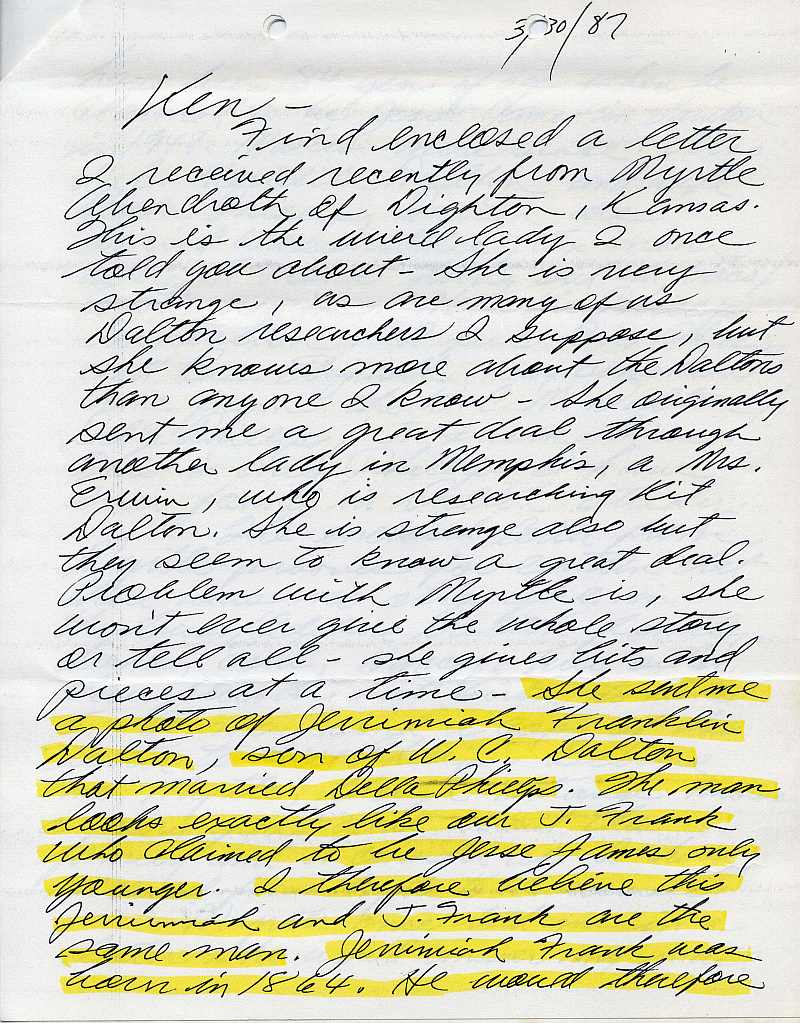 3/30/87
Ken -
Find enclosed a letter
I received recently from Myrtle
Abendroth of Dighton, Kansas.
This is the weird lady I once
told you about - She is very
strange, as are many of us
Dalton researchers I suppose, but
she knows more about the Daltons
than anyone I know - She originally
sent me a great deal through
another lady in Memphis, a Mrs.
Erwin, who is researching Kit
Dalton. She is strange also but
they seem to know a great deal.
Problem with Myrtle is, she
won't ever give the whole story
or tell all - she gives bits and
pieces at a time - She sent me
a photo of Jerimiah Franklin
Dalton, son of W. C. Dalton
that married Della Phielps. The man
looks exactly like our J. Frank
who claimed to be Jesse James only
younger. I therefore believe this
Jerimiah and J. Frank are the
same man. Jerimiah Frank was
born in 1864. He would therefore